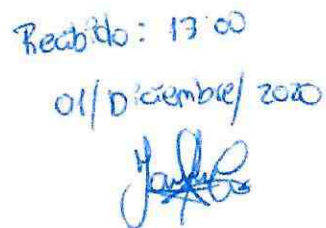 Recibido: 13:00
01/Diciembre/2020